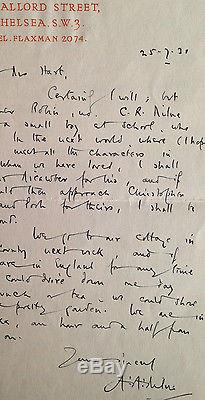 ALLORD STREET,
HELSEA. S.W.3.
EL. FLAXMAN 2074.
25.7.31
Mrs Hart,
Certainly I will; but
Robin, no. C. R. Milne
a small boy at school, who
the next world, where (I hope
meet all the characters in
when we have loved, I shall
for his and if
then approach Christopher
and Pooh for theirs, I shall be
We go to our cottage in
next week and if
are in England for any time
could drive down one day
lunch or tea, we could show
pretty garden. We are in
an hour and a half from
Yours sincerely
A. A. Milne